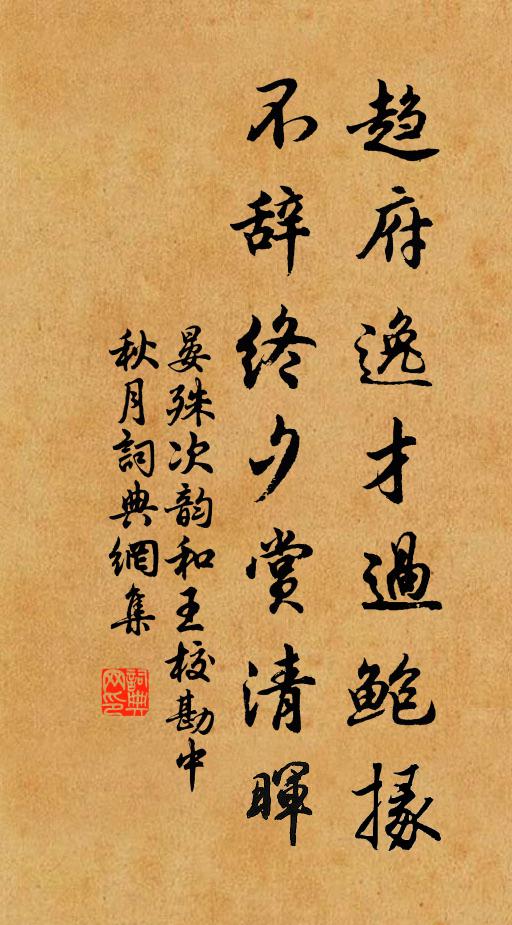 趋府逸才過鮑掾
不辞終夕赏清暉
晏殊次韵和王校勘中
秋月詞典網集
詞典
网印